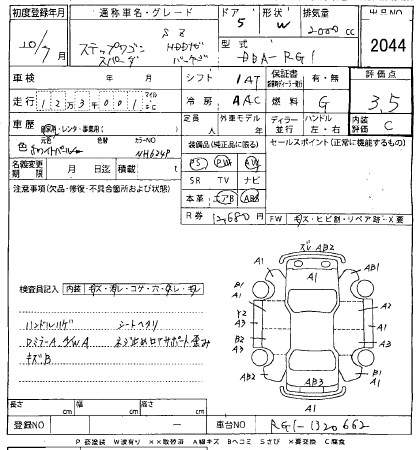 初度登録年月 通称車名・グレード ドア 形状 排気量 出品NO
20/9 ステップワゴン スパーダ S Z HDDナビ パッケージ 5 W 2000 cc 2044
型式 DBA-RG1
車検 年 月 シフト IAT 保証書 有・無 評価点
走行 12万3千001 マイル km 冷房 AAC 燃料 G 3.5
車歴 自家用・レンタ・事業用( ) 定員 人 外車モデル 年 ディーラー 並行 ハンドル 左・右 内装評価 C
色 元色 ホワイトパール 色替 カラーNO NH624P 装備品(純正品に限る) セールスポイント(正常に機能するもの)
PS PW AW
名義変更期限 月 日迄 積載 t SR TV ナビ
注意事項(欠品・修復・不具合箇所および状態) 本革 エアB ABS
R券 12,680 円 FW キズ・ヒビ割・リペア跡・X要
ズレ AB2
A1 A1 AB1
B1 A1 A1 B1
Y2 A3 A2 A1
B2 A3 A1 A3
検査員記入 内装 キズ・汚レ・コゲ・穴・ダレ・モレ
ハンドルハゲ シートヘタリ
DミラーA グWA コア止めロアサポート歪み
キズB
AB2 A1 AB3 B1 A1
A1
長さ cm 幅 cm 高さ cm
登録NO 車台NO RG1-1320662
P 要塗装 W波有り XX取替済 A線キズ Bヘコミ Sさび X要交換 C腐食